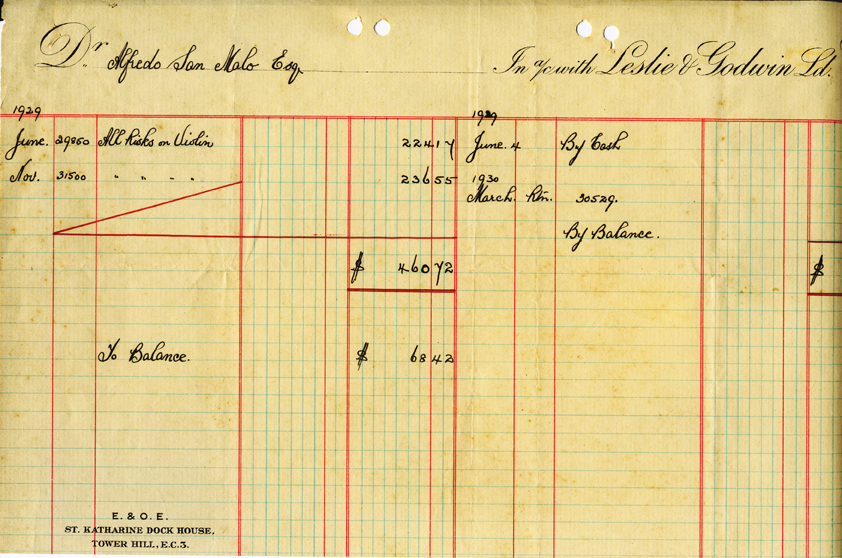 Dr. Alfredo San Malo Esq. In a/c with Leslie & Godwin Ld.
1929 1929
June. 29860 All Risks on Violin 224 17 June. 4 By Cash
Nov. 31500 " " " " 236 55 1930
March. Rtn. 30529.
By Balance.
$ 460 72 $
To Balance. $ 68 42
E. & O. E.
ST. KATHARINE DOCK HOUSE,
TOWER HILL, E.C.3.